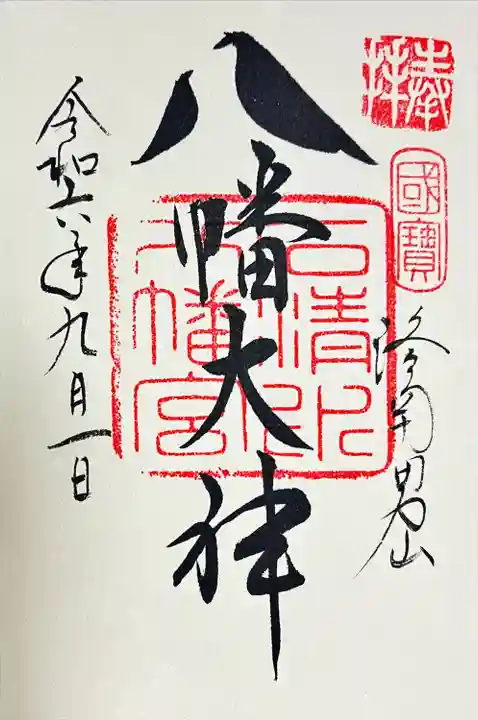 奉拝
國寶
洛南男山
八幡大神
石清水八幡宮
令和六年九月一日